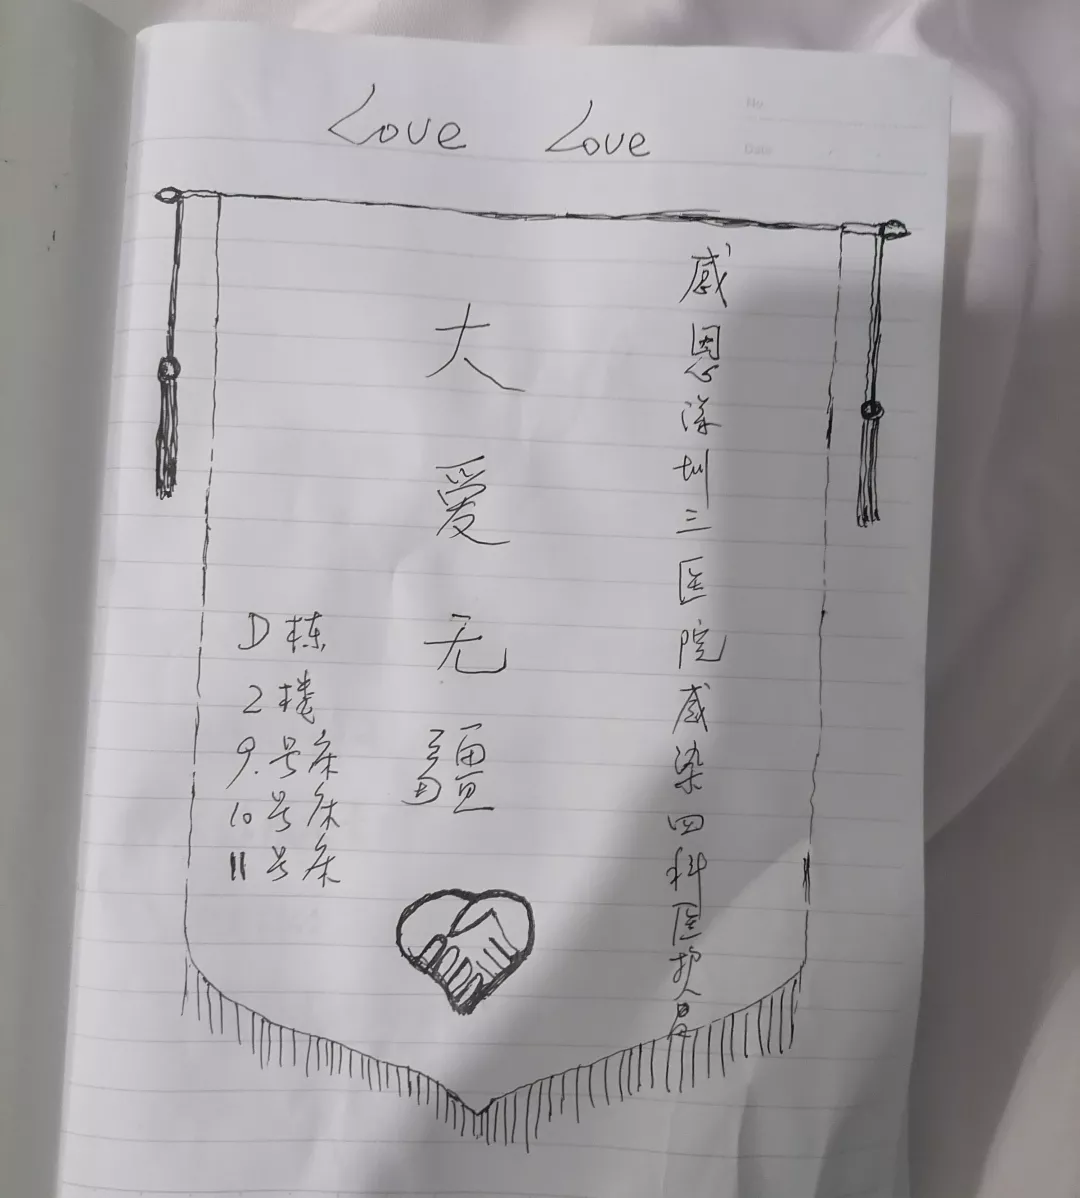 No.
Date
Love Love
感恩深圳三医院感染四科医护人员
大爱无疆
D栋
2楼
9.号床
10号床
11号床